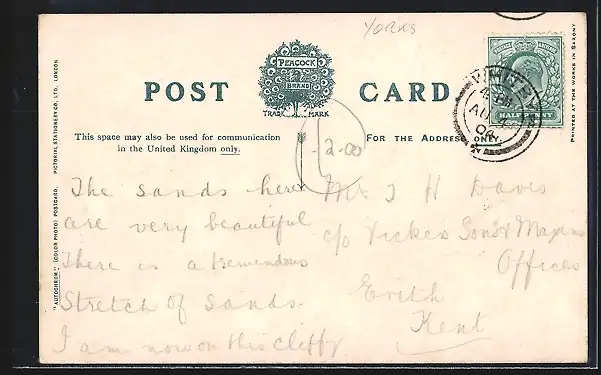 YORKS
POST CARD
PEACOCK
BRAND
TRADE MARK
HALFPENNY
WHITBY
AU
08
This space may also be used for communication
in the United Kingdom only.
FOR THE ADDRESS ONLY.
2.00
The sands here
are very beautiful
there is a tremendous
Stretch of Sands.
I am now on this cliff
Mr J H Davis
c/o Vickes Sons & Maxims
Offices
Erith
Kent
"AUTOCHROM" (COLOR PHOTO) POSTCARD. PICTORIAL STATIONERY CO., LTD., LONDON
PRINTED AT THE WORKS IN SAXONY